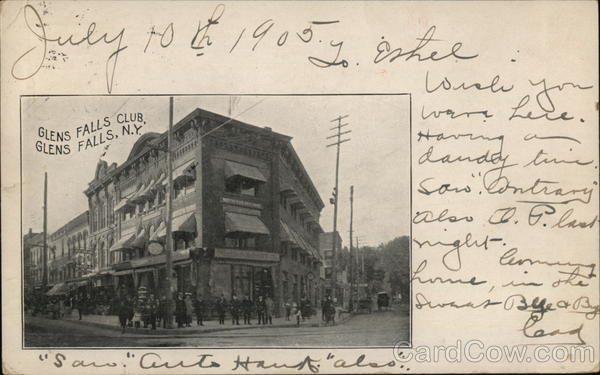 July 10th 1905.
To. Ethel
Wish you
were here.
Having a
dandy time.
Saw "Contrary"
Also O. P. last
night.
Coming
home, in the
Sweet Bye & By
GLENS FALLS CLUB,
GLENS FALLS, N.Y.
"Saw." Aunt "also".
CardCow.com